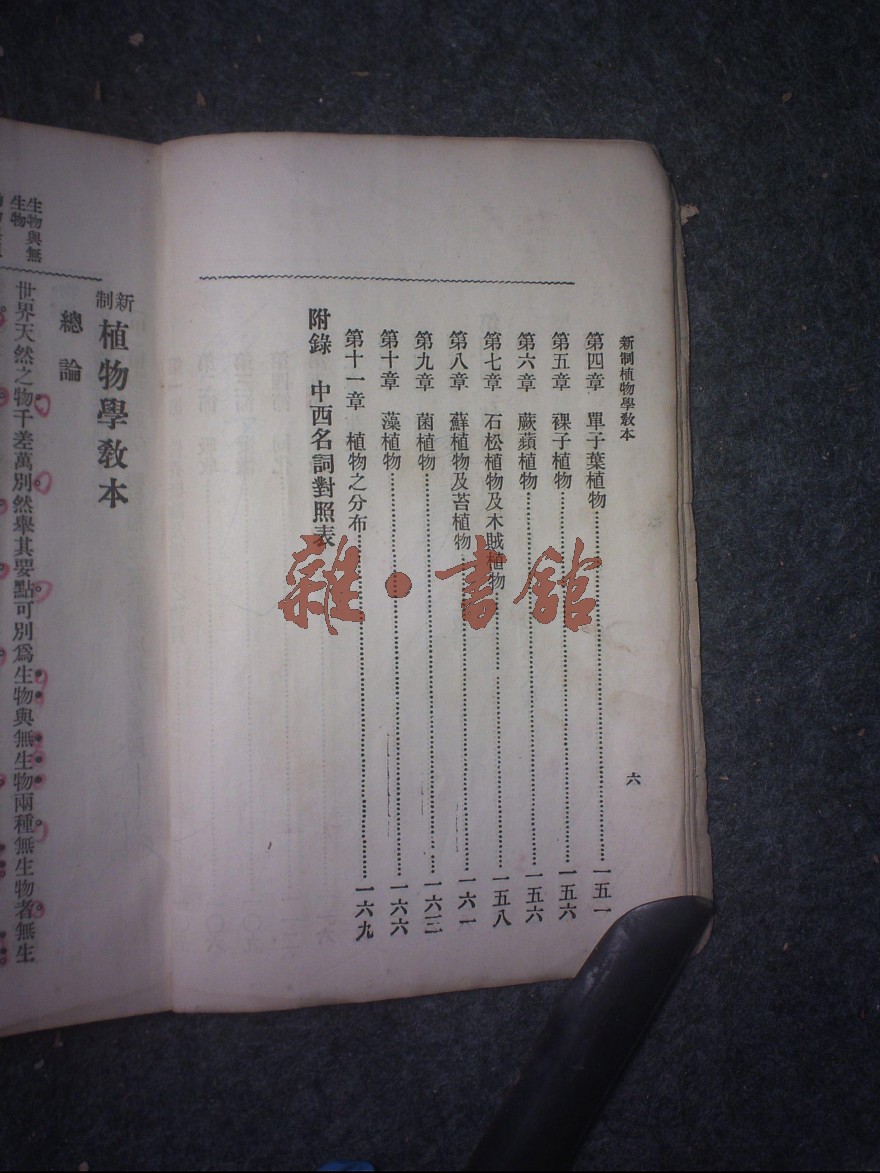 新制植物學敎本
六
第四章 單子葉植物…………一五一
第五章 裸子植物…………一五六
第六章 蕨蘋植物…………一五六
第七章 石松植物及木賊植物…………一五八
第八章 蘚植物及苔植物…………一六一
第九章 菌植物…………一六三
第十章 藻植物…………一六六
第十一章 植物之分布…………一六九
附錄 中西名詞對照表
雜·書館
新制 植物學敎本
總論
生物與無
生物
世界天然之物千差萬別然舉其要點可別爲生物與無生物兩種無生物者無生